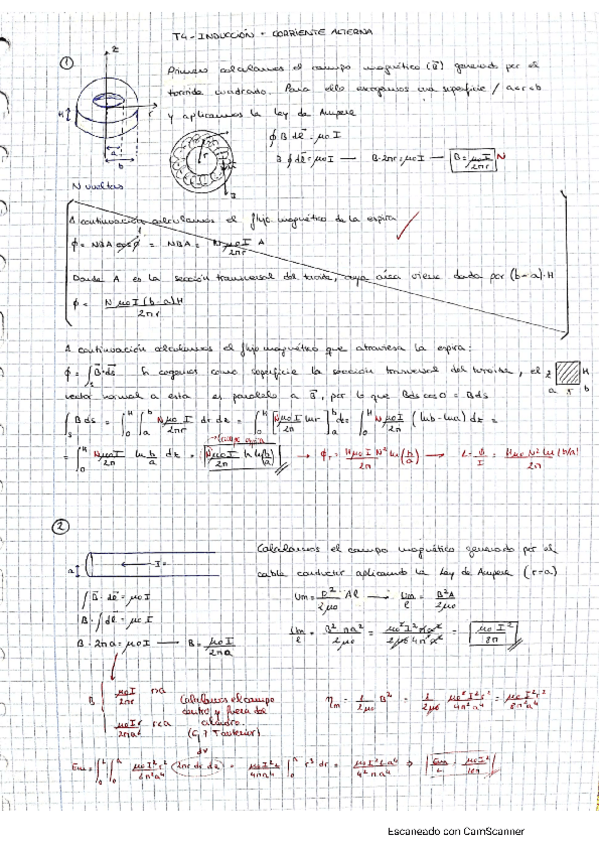 T4 - INDUCCIÓN + CORRIENTE ALTERNA
1
z
Primero calculamos el campo magnético (B⃗) generado por el
toroide cuadrado. Para ello escogemos una superficie / a<r<b
y aplicamos la Ley de Ampere
H
r
a
b
r
I
∮ B dl⃗ = μ₀ I
B ∮ dl⃗ = μ₀I — B·2πr = μ₀I — B = μ₀I / 2πr N
N vueltas
A continuación calculamos el flujo magnético de la espira
ϕ = NBA cosϕ = NBA = Nμ₀I / 2πr A
Donde A es la sección transversal del toroide, cuya área viene dada por (b-a)·H
ϕ = Nμ₀I(b-a)H / 2πr
A continuación calculamos el flujo magnético que atraviesa la espira:
ϕ = ∫s B⃗·ds⃗ cogemos como superficie la sección transversal del toroide, el
z H a r b
vector normal a esta es paralelo a B⃗, por lo que Bds cos0 = Bds
∫s B ds = ∫₀ᴴ ∫ₐᵇ Nμ₀I / 2πr dr dz = ∫₀ᴴ [Nμ₀I / 2π lnr]ₐᵇ dz = ∫₀ᴴ Nμ₀I / 2π (lnb - lna) dz =
= ∫₀ᴴ Nμ₀I / 2π ln b/a dz = Nμ₀I / 2π H ln(b/a) → ϕT = Hμ₀I N² / 2π ln(b/a) → L = ϕ / I = Hμ₀ N² ln(b/a) / 2π
2
a
← I
Calculamos el campo magnético generado por el
cable conductor aplicando la Ley de Ampere (r=a)
∫ B⃗·dl⃗ = μ₀I
Um = B² / 2μ₀ Al → Um / l = B²A / 2μ₀
B·∫ dl⃗ = μ₀I
B·2πa = μ₀I — B = μ₀I / 2πa
Um / l = B² πa² / 2μ₀ = μ₀²I²πa² / 2μ₀4π²a² = μ₀I² / 8π
B { μ₀I / 2πr r>a
μ₀Ir / 2πa² r<a
Calculamos el campo
dentro y fuera del
cilindro.
ηm = 1 / 2μ₀ B² = 1 / 2μ₀ μ₀²I²r² / 4π²a⁴ = μ₀I²r² / 8π²a⁴
dV
2πr dr dz
Escaneado con CamScanner